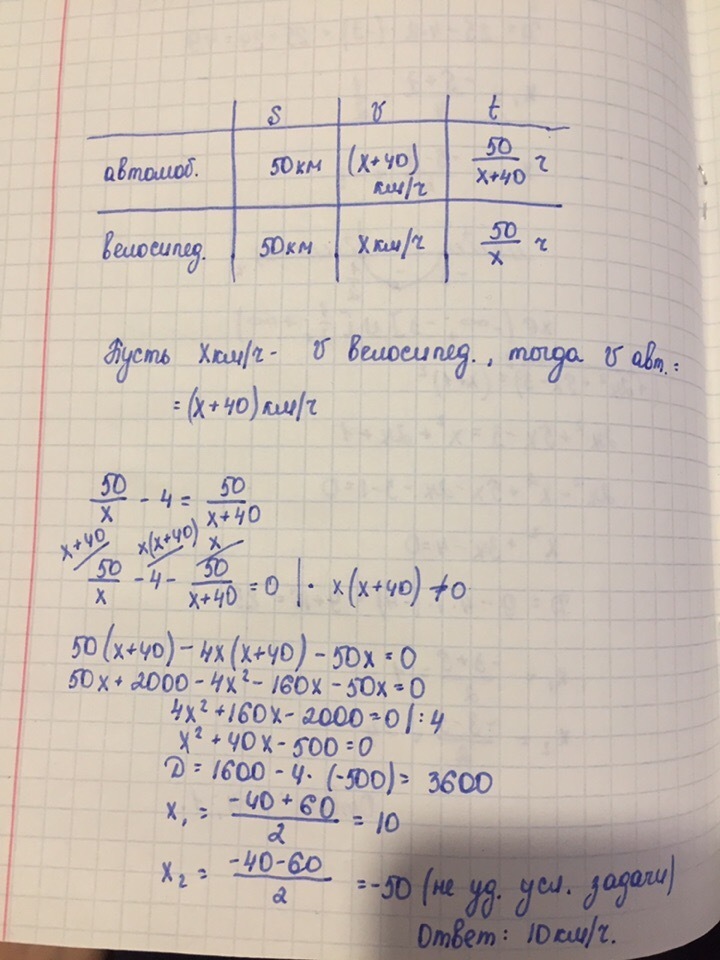 S v t
автомоб. 50км (x+40) км/ч 50/(x+40) ч
велосипед. 50км xкм/ч 50/x ч
Пусть xкм/ч - v велосипед., тогда v авт.=
=(x+40)км/ч
50/x - 4 = 50/(x+40)
x+40 x(x+40) x
50/x - 4 - 50/(x+40) = 0 | · x(x+40) ≠ 0
50(x+40) - 4x(x+40) - 50x = 0
50x + 2000 - 4x² - 160x - 50x = 0
4x² + 160x - 2000 = 0 | :4
x² + 40x - 500 = 0
D = 1600 - 4 · (-500) = 3600
x₁ = (-40 + 60)/2 = 10
x₂ = (-40 - 60)/2 = -50 (не уд. усл. задачи)
Ответ: 10км/ч.